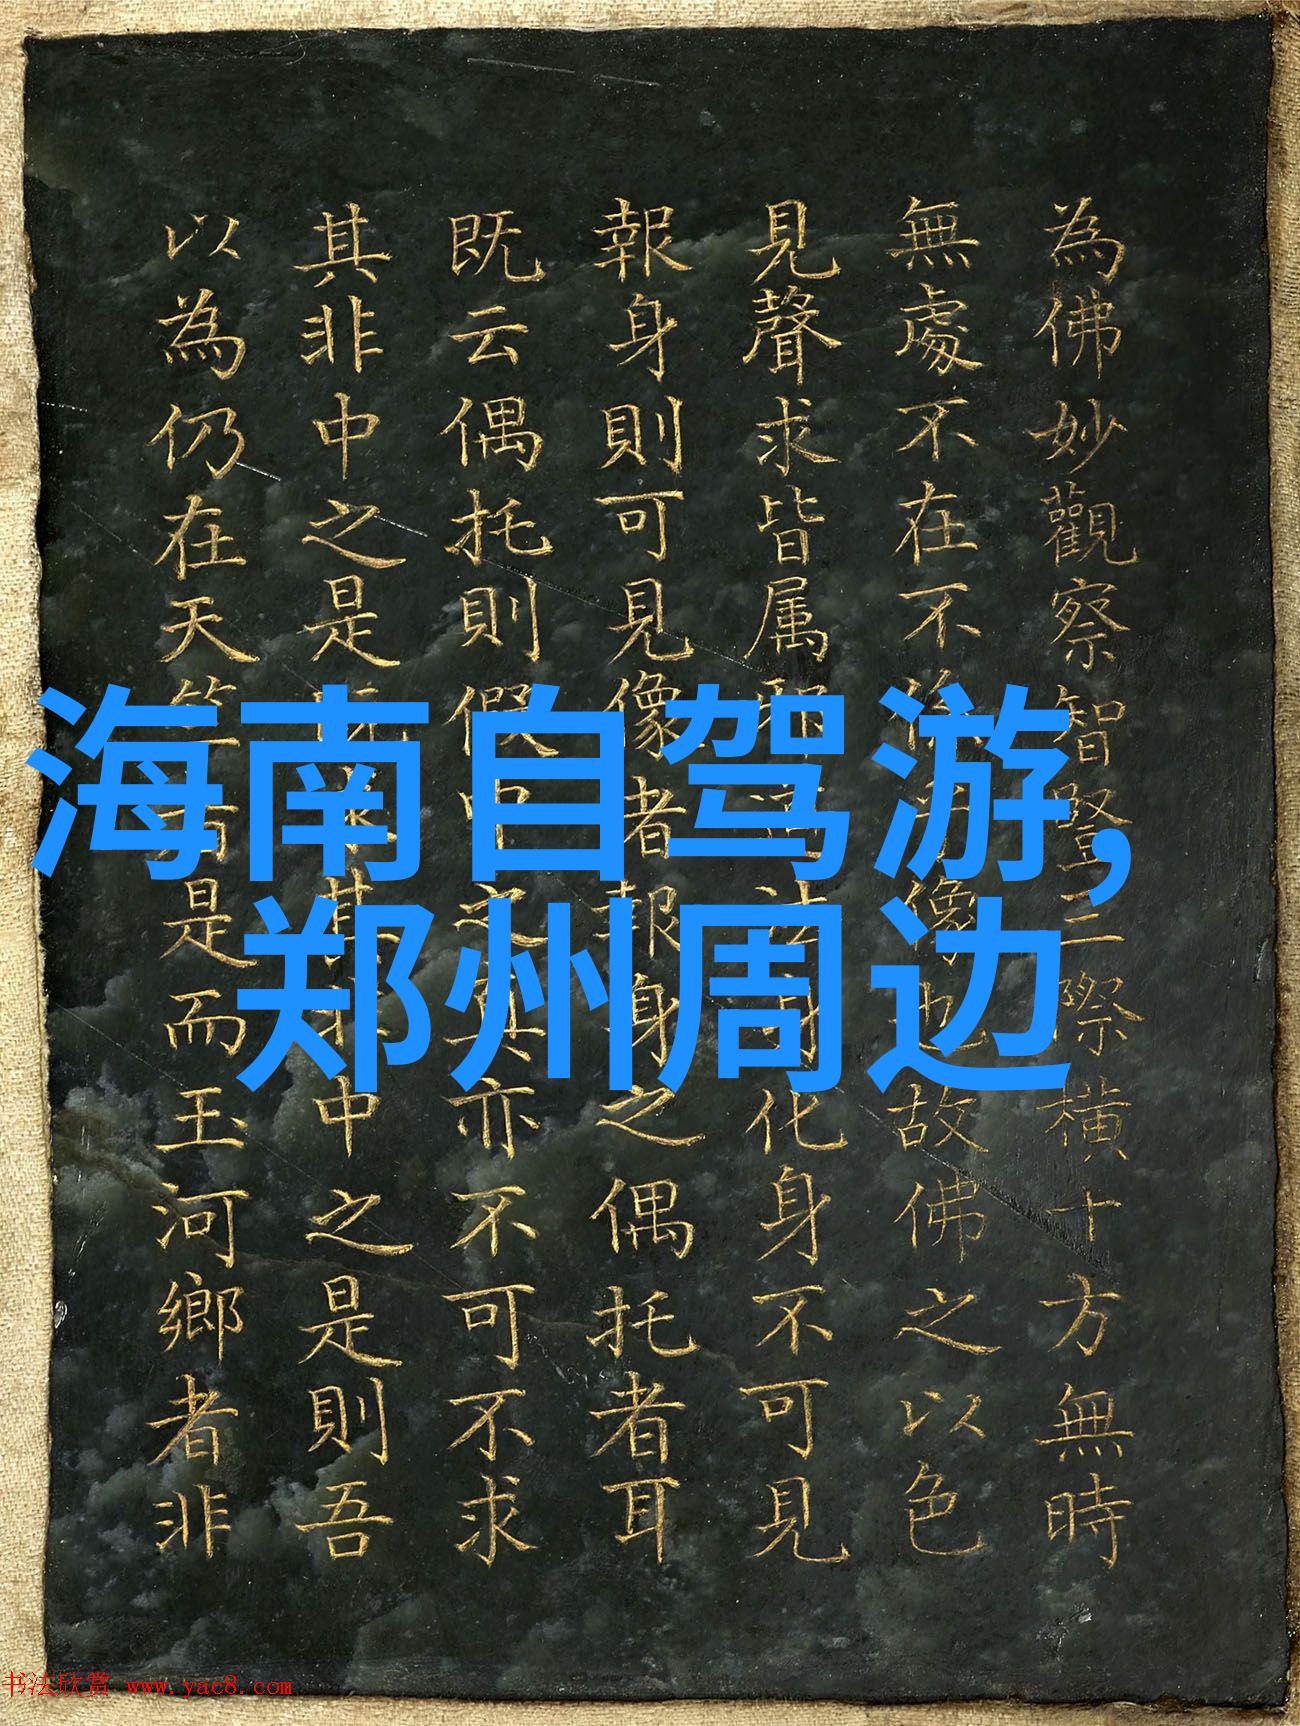 為佛妙觀察智證三際橫十方無時
無處不在不像故佛之以色
見聲求皆属化身不可見
報身則可見像者報身之偶托者耳
既云偶托則假中之真亦不可不求
其非中之是中之是則吾
以為仍在天竺者是而玉河鄉者非
海南自驾游,
郑州周边
书法欣赏 www.yac8.com